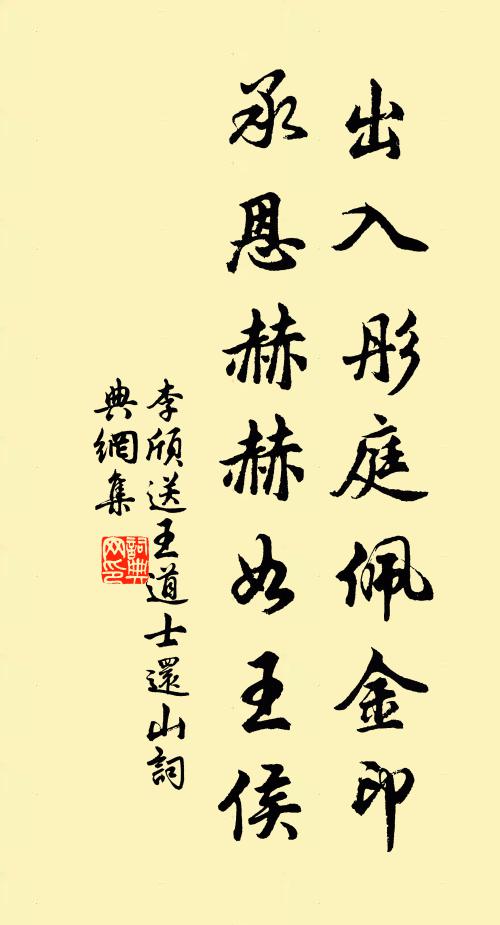 出入彤庭佩金印
承恩赫赫如王侯
李頎送王道士還山詞
典網集
詞典
网印